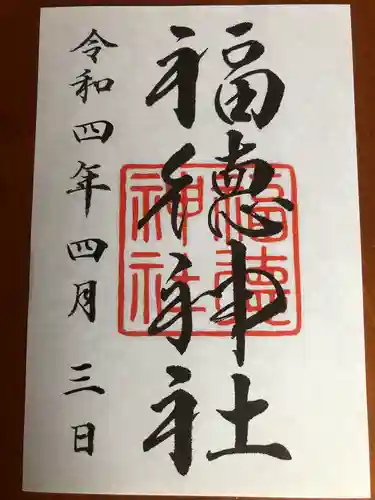 福徳神社
令和四年四月三日
福徳
神社